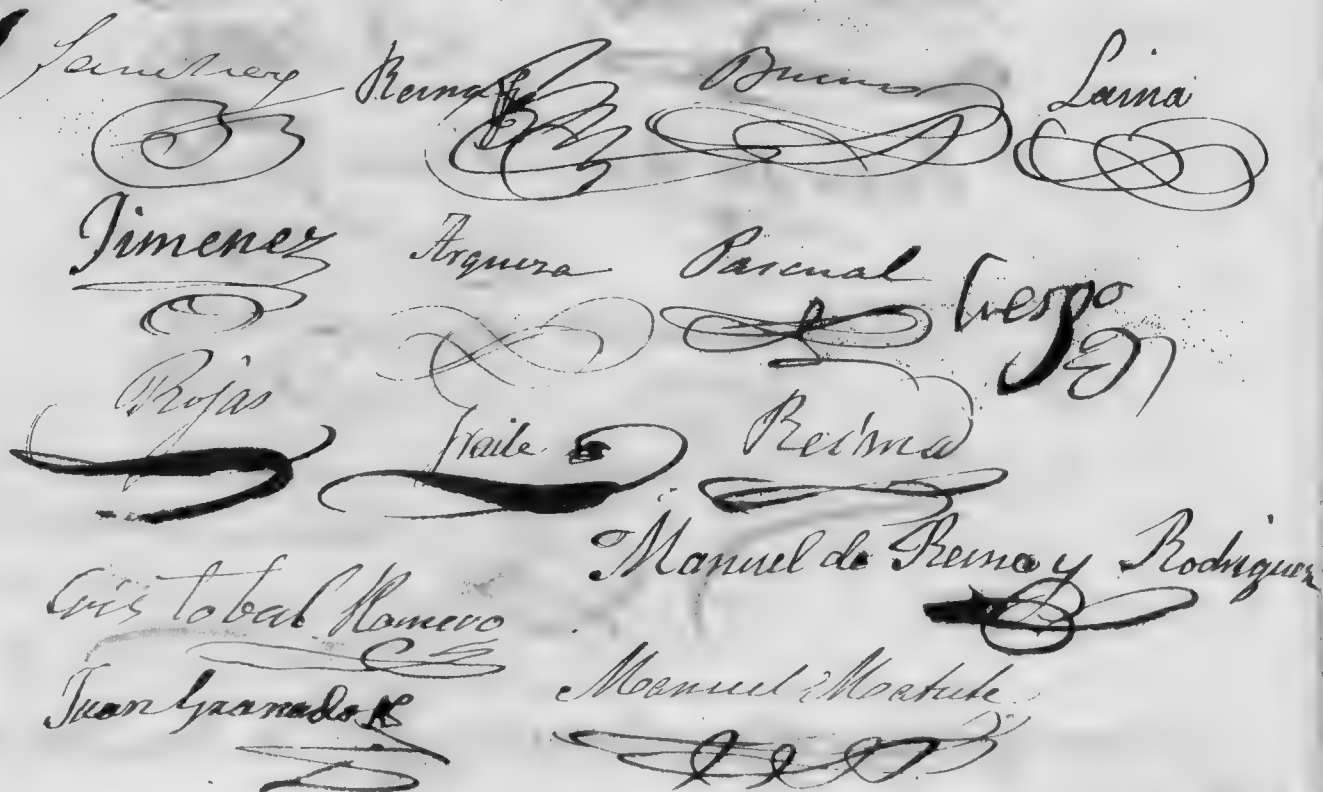 Sanchez Reina Bueno Laina
Jimenez Arqueza Pascual Crespo
Rojas Fraile Reina
Manuel de Reina y Rodriguez
Cristobal Romero
Juan Granado Manuel Matute